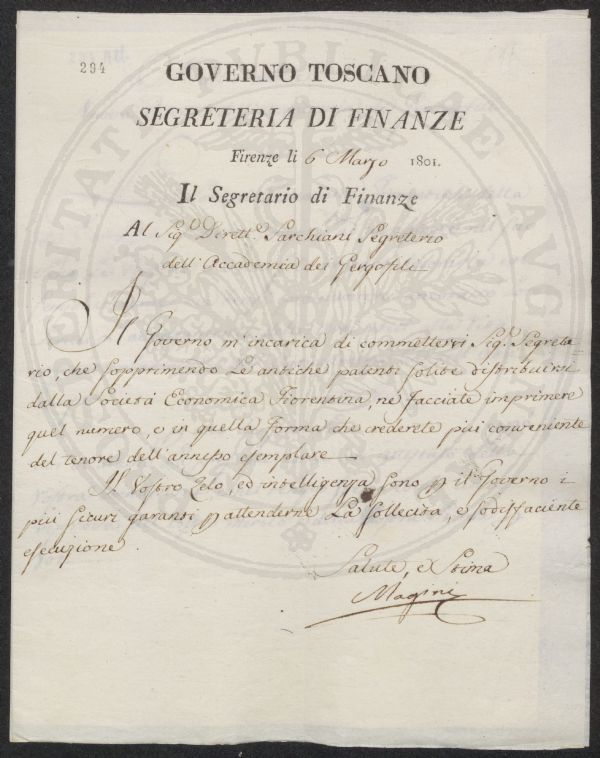 294
GOVERNO TOSCANO
SEGRETERIA DI FINANZE
Firenze li 6 Marzo 1801.
Il Segretario di Finanze
Al Sig.º Dirett.º Sarchiani Segreterio
dell'Accademia dei Gergofili
Il Governo m'incarica di commettervi Sig.º Segreta=
rio, che sopprimendo le antiche patenti solite distribuirsi
dalla Società Economica Fiorentina, ne facciate imprimere
quel numero, e in quella forma che crederete più conveniente
del tenore dell'annesso esemplare
Il Vostro Zelo, ed intelligenza sono p il Governo i
più sicuri garanti p attenderne la sollecita, e sodisfaciente
esecuzione
Salute, e Stima
Magini